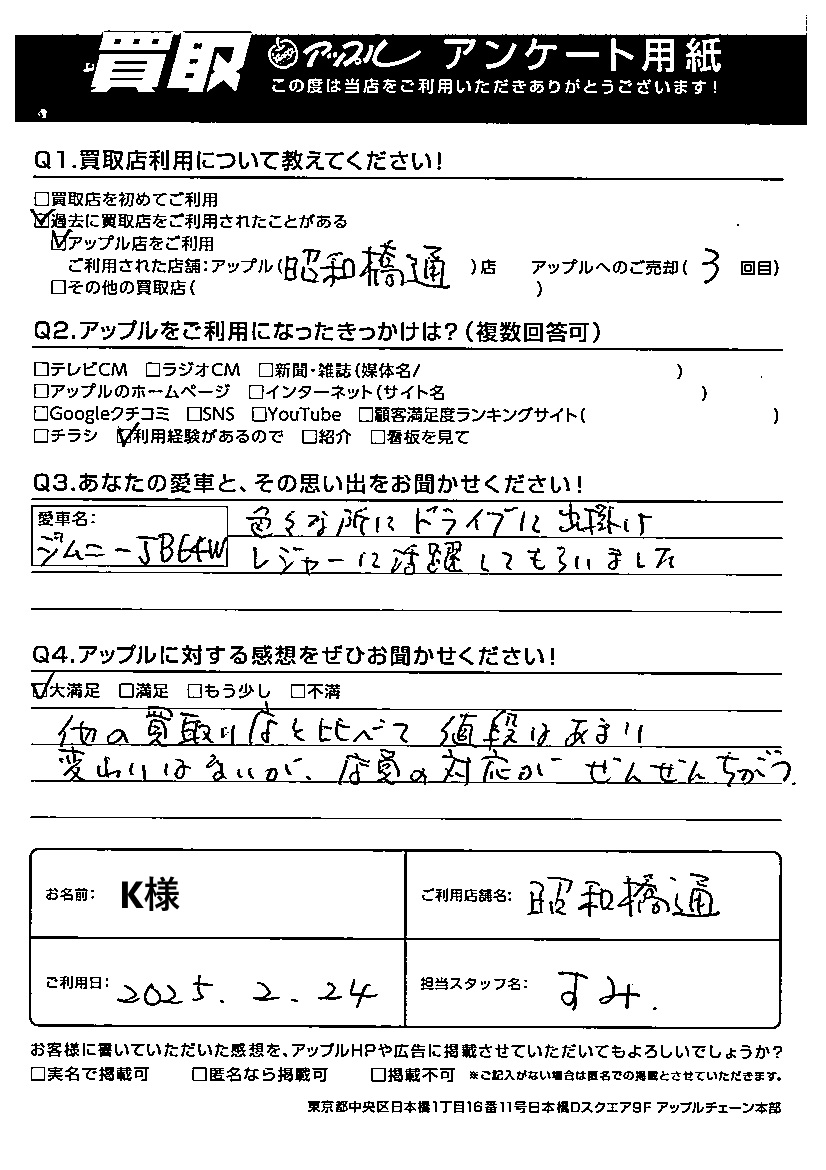 買取 アップル アンケート用紙
この度は当店をご利用いただきありがとうございます!
Q1.買取店利用について教えてください!
□買取店を初めてご利用
☑過去に買取店をご利用されたことがある
☑アップル店をご利用
ご利用された店舗:アップル(昭和橋通)店 アップルへのご売却(3 回目)
□その他の買取店( )
Q2.アップルをご利用になったきっかけは?(複数回答可)
□テレビCM □ラジオCM □新聞・雑誌(媒体名/ )
□アップルのホームページ □インターネット(サイト名 )
□Googleクチコミ □SNS □YouTube □顧客満足度ランキングサイト( )
□チラシ ☑利用経験があるので □紹介 □看板を見て
Q3.あなたの愛車と、その思い出をお聞かせください!
愛車名:
ジムニーJB64W
色々な所にドライブに出掛け
レジャーに活躍してもらいました
Q4.アップルに対する感想をぜひお聞かせください!
☑大満足 □満足 □もう少し □不満
他の買取り店と比べて 値段はあまり
変わりはないが、店員の対応が ぜんぜんちがう.
お名前: K様 ご利用店舗名: 昭和橋通
ご利用日: 2025.2.24 担当スタッフ名: すみ.
お客様に書いていただいた感想を、アップルHPや広告に掲載させていただいてもよろしいでしょうか?
□実名で掲載可 □匿名なら掲載可 □掲載不可 ※ご記入がない場合は匿名での掲載とさせていただきます。
東京都中央区日本橋1丁目16番11号日本橋Dスクエア9F アップルチェーン本部